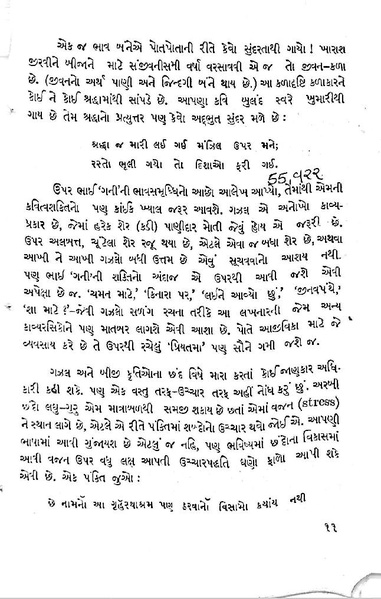 એક જ ભાવ બંનેએ પોતપોતાની રીતે કેવો સુંદરતાથી ગાયો ! ખારાશ
જીરવીને બીજાને માટે સંજીવનીસમી વર્ષા વરસાવવી એ જ તો જીવન-કળા
છે. (જીવનનો અર્થ પાણી અને જિન્દગી બંને થાય છે.) આ કળાદૃષ્ટિ કળાકારને
કોઈ ને કોઈ શ્રદ્ધામાંથી સાંપડે છે. આપણા કવિ બુલંદ સ્વરે ખુમારીથી
ગાય છે તેમ શ્રદ્ધાનો પ્રત્યુત્તર પણ કેવો અદ્‌ભુત સુંદર મળે છે :
શ્રદ્ધા જ મારી લઈ ગઈ મંઝિલ ઉપર મને;
રસ્તો ભૂલી ગયો તો દિશાઓ ફરી ગઈ.
55,922
ઉપર ભાઈ ‘ગની’ની ભાવસમૃદ્ધિનો આછો આલેખ આપ્યો, તેમાંથી એમની
કવિત્વશક્તિનો પણ કાંઈક ખ્યાલ જરૂર આવશે. ગઝલ એ અનોખો કાવ્ય-
પ્રકાર છે, જેમાં હરેક શેર (કડી) પાણીદાર મોતી જેવું હોય એ જરૂરી છે.
ઉપર અલબત્ત, ચૂંટેલા શેર રજૂ થયા છે, એટલે એવા જ બધા શેર છે, અથવા
આખી ને આખી ગઝલો બધી ઉત્તમ છે એવું સૂચવવાનો આશય નથી.
પણ ભાઈ ‘ગની’ની શક્તિનો અંદાજ એ ઉપરથી આવી જશે એવી
અપેક્ષા છે જ. ‘ચમન માટે,’ ‘કિનારા પર,’ ‘લઈને આવ્યો છું,’ ‘જીવનપંથે,’
‘શા માટે ?’-જેવી ગઝલો સળંગ રચના તરીકે આ લખનારની જેમ અન્ય
કાવ્યરસિકોને પણ માતબર લાગશે એવી આશા છે. પોતે આજીવિકા માટે જે
વ્યવસાય કરે છે તે ઉપરથી રચેલું ‘પ્રિયતમા’ પણ સૌને ગમી જશે જ.
ગઝલ અને બીજી કૃતિઓના છંદ વિષે મારા કરતાં કોઈ જાણકાર અધિ-
કારી કહી શકે. પણ એક વસ્તુ તરફ–ઉચ્ચાર તરફ અહીં નોંધ કરું છું. અરબી
છંદો લઘુ-ગુરુ એમ માત્રામળથી સમજી શકાય છે છતાં એમાં વજન (stress)
ને સ્થાન લાગે છે. એટલે એ રીતે પંક્તિમાં શબ્દોનો ઉચ્ચાર થવો જોઈએ. આપણી
ભાષામાં આવી ગુંજાયશ છે એટલું જ નહિ, પણ ભવિષ્યમાં છંદોના વિકાસમાં
આવી વજન ઉપર વધુ લક્ષ આપતી ઉચ્ચારપદ્ધતિ ઘણો ફાળો આપી શકે
એવી છે. એક પંક્તિ જુઓ :
છે નામનો આ ગૃહસ્થાશ્રમ પણ ઠરવાનો વિસામો ક્યાંય નથી
૧૧